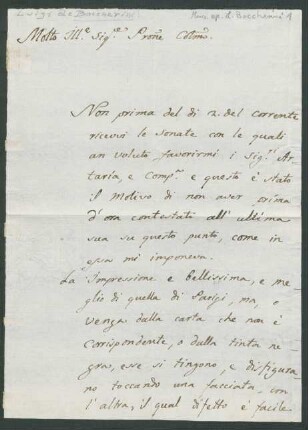 Luigi de Boccherini
Mus. ep. L. Boccherini 1
Molto Ill.e Sig.e Prone Colmo.
Non prima del di 2. del corrente
ricevei le sonate con le quali
an voluto favorirmi i Sig.i Ar-
taria, e Comp.i e questo è stato
il Motivo di non aver prima
d'ora contestato all'ultima
sua su questo punto, come in
essa mi imponeva.
La impressione e Bellissima, e me-
glio di quella di Parigi, ma, o
venga dalla carta che non è
corrispondente, o dalla tinta ne
gra, esse si tingono, e disfigura
no toccando una facciata, con
l'altra, il qual difetto è facile